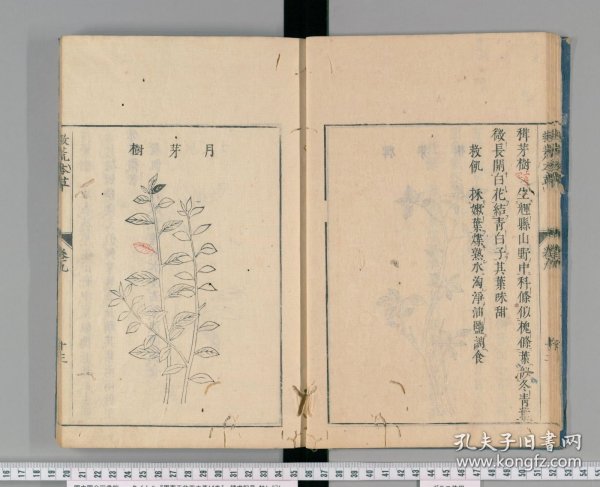 稗芽樹生輝縣山野中科條似槐條葉似冬青葉
微長開白花結青白子其葉味甜
救飢 採嫩葉煠熟水淘淨油鹽調食
月芽樹
救荒本草
卷九
十三
孔夫子旧书网
www.kongfz.com